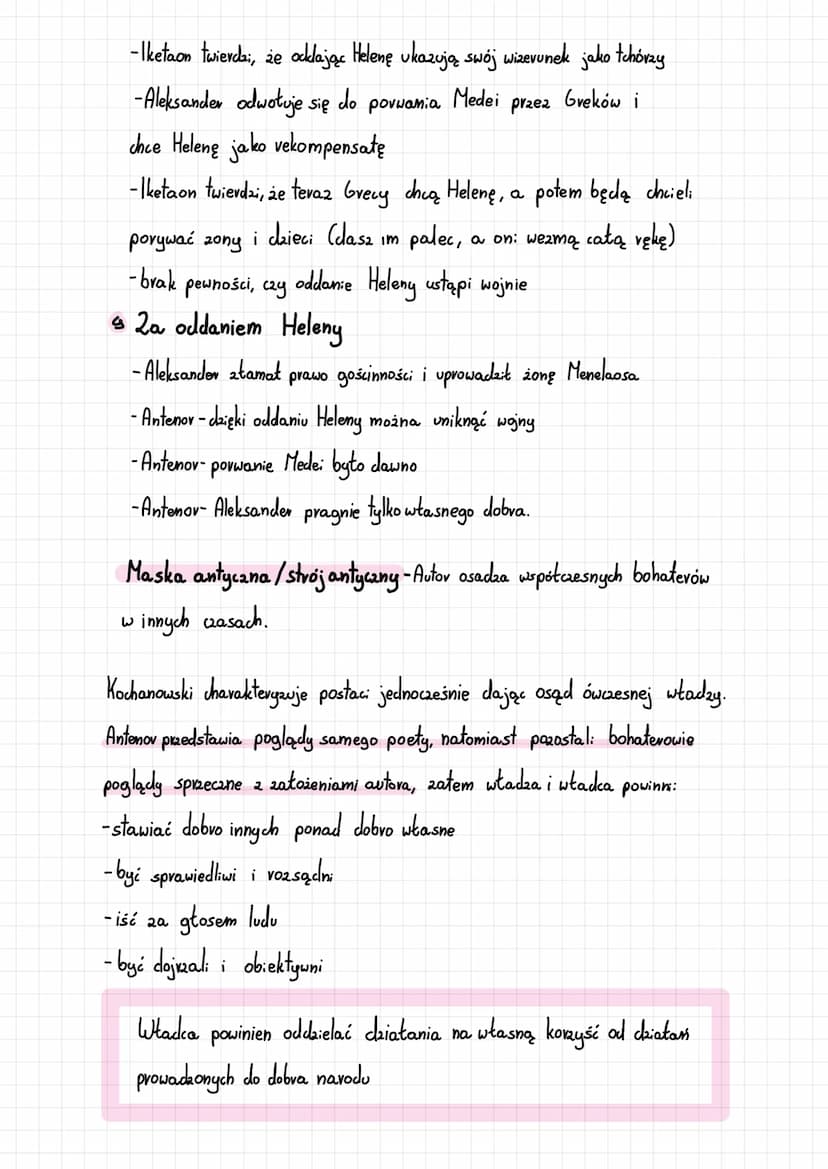 -Iketaon twierdzi, że oddając Helenę ukazują swój wizerunek jako tchórzy
-Aleksander odwołuje się do porwania Medei przez Greków i
chce Helenę jako rekompensatę
-Iketaon twierdzi, że teraz Grecy chcą Helenę, a potem będą chcieli
porywać żony i dzieci (dasz im palec, a oni wezmą całą rękę)
-brak pewności, czy oddanie Heleny ustąpi wojnie
Za oddaniem Heleny
-Aleksander złamał prawo gościnności i uprowadził żonę Menelaosa
-Antenor-dzięki oddaniu Heleny można uniknąć wojny
-Antenor- porwanie Medei było dawno
-Antenor- Aleksander pragnie tylko własnego dobra.
Maska antyczna/strój antyczny-Autor osadza współczesnych bohaterów
w innych czasach.
Kochanowski charakteryzuje postaci jednocześnie dając osąd ówczesnej władzy.
Antenor przedstawia poglądy samego poety, natomiast pozostali bohaterowie
poglądy sprzeczne z założeniami autora, zatem władza i władca powinni:
-stawiać dobro innych ponad dobro własne
-być sprawiedliwi i rozsądni
-iść za głosem ludu
-być dojrzali i obiektywni
Władca powinien oddzielać działania na własną korzyść od działań
prowadzonych do dobra narodu